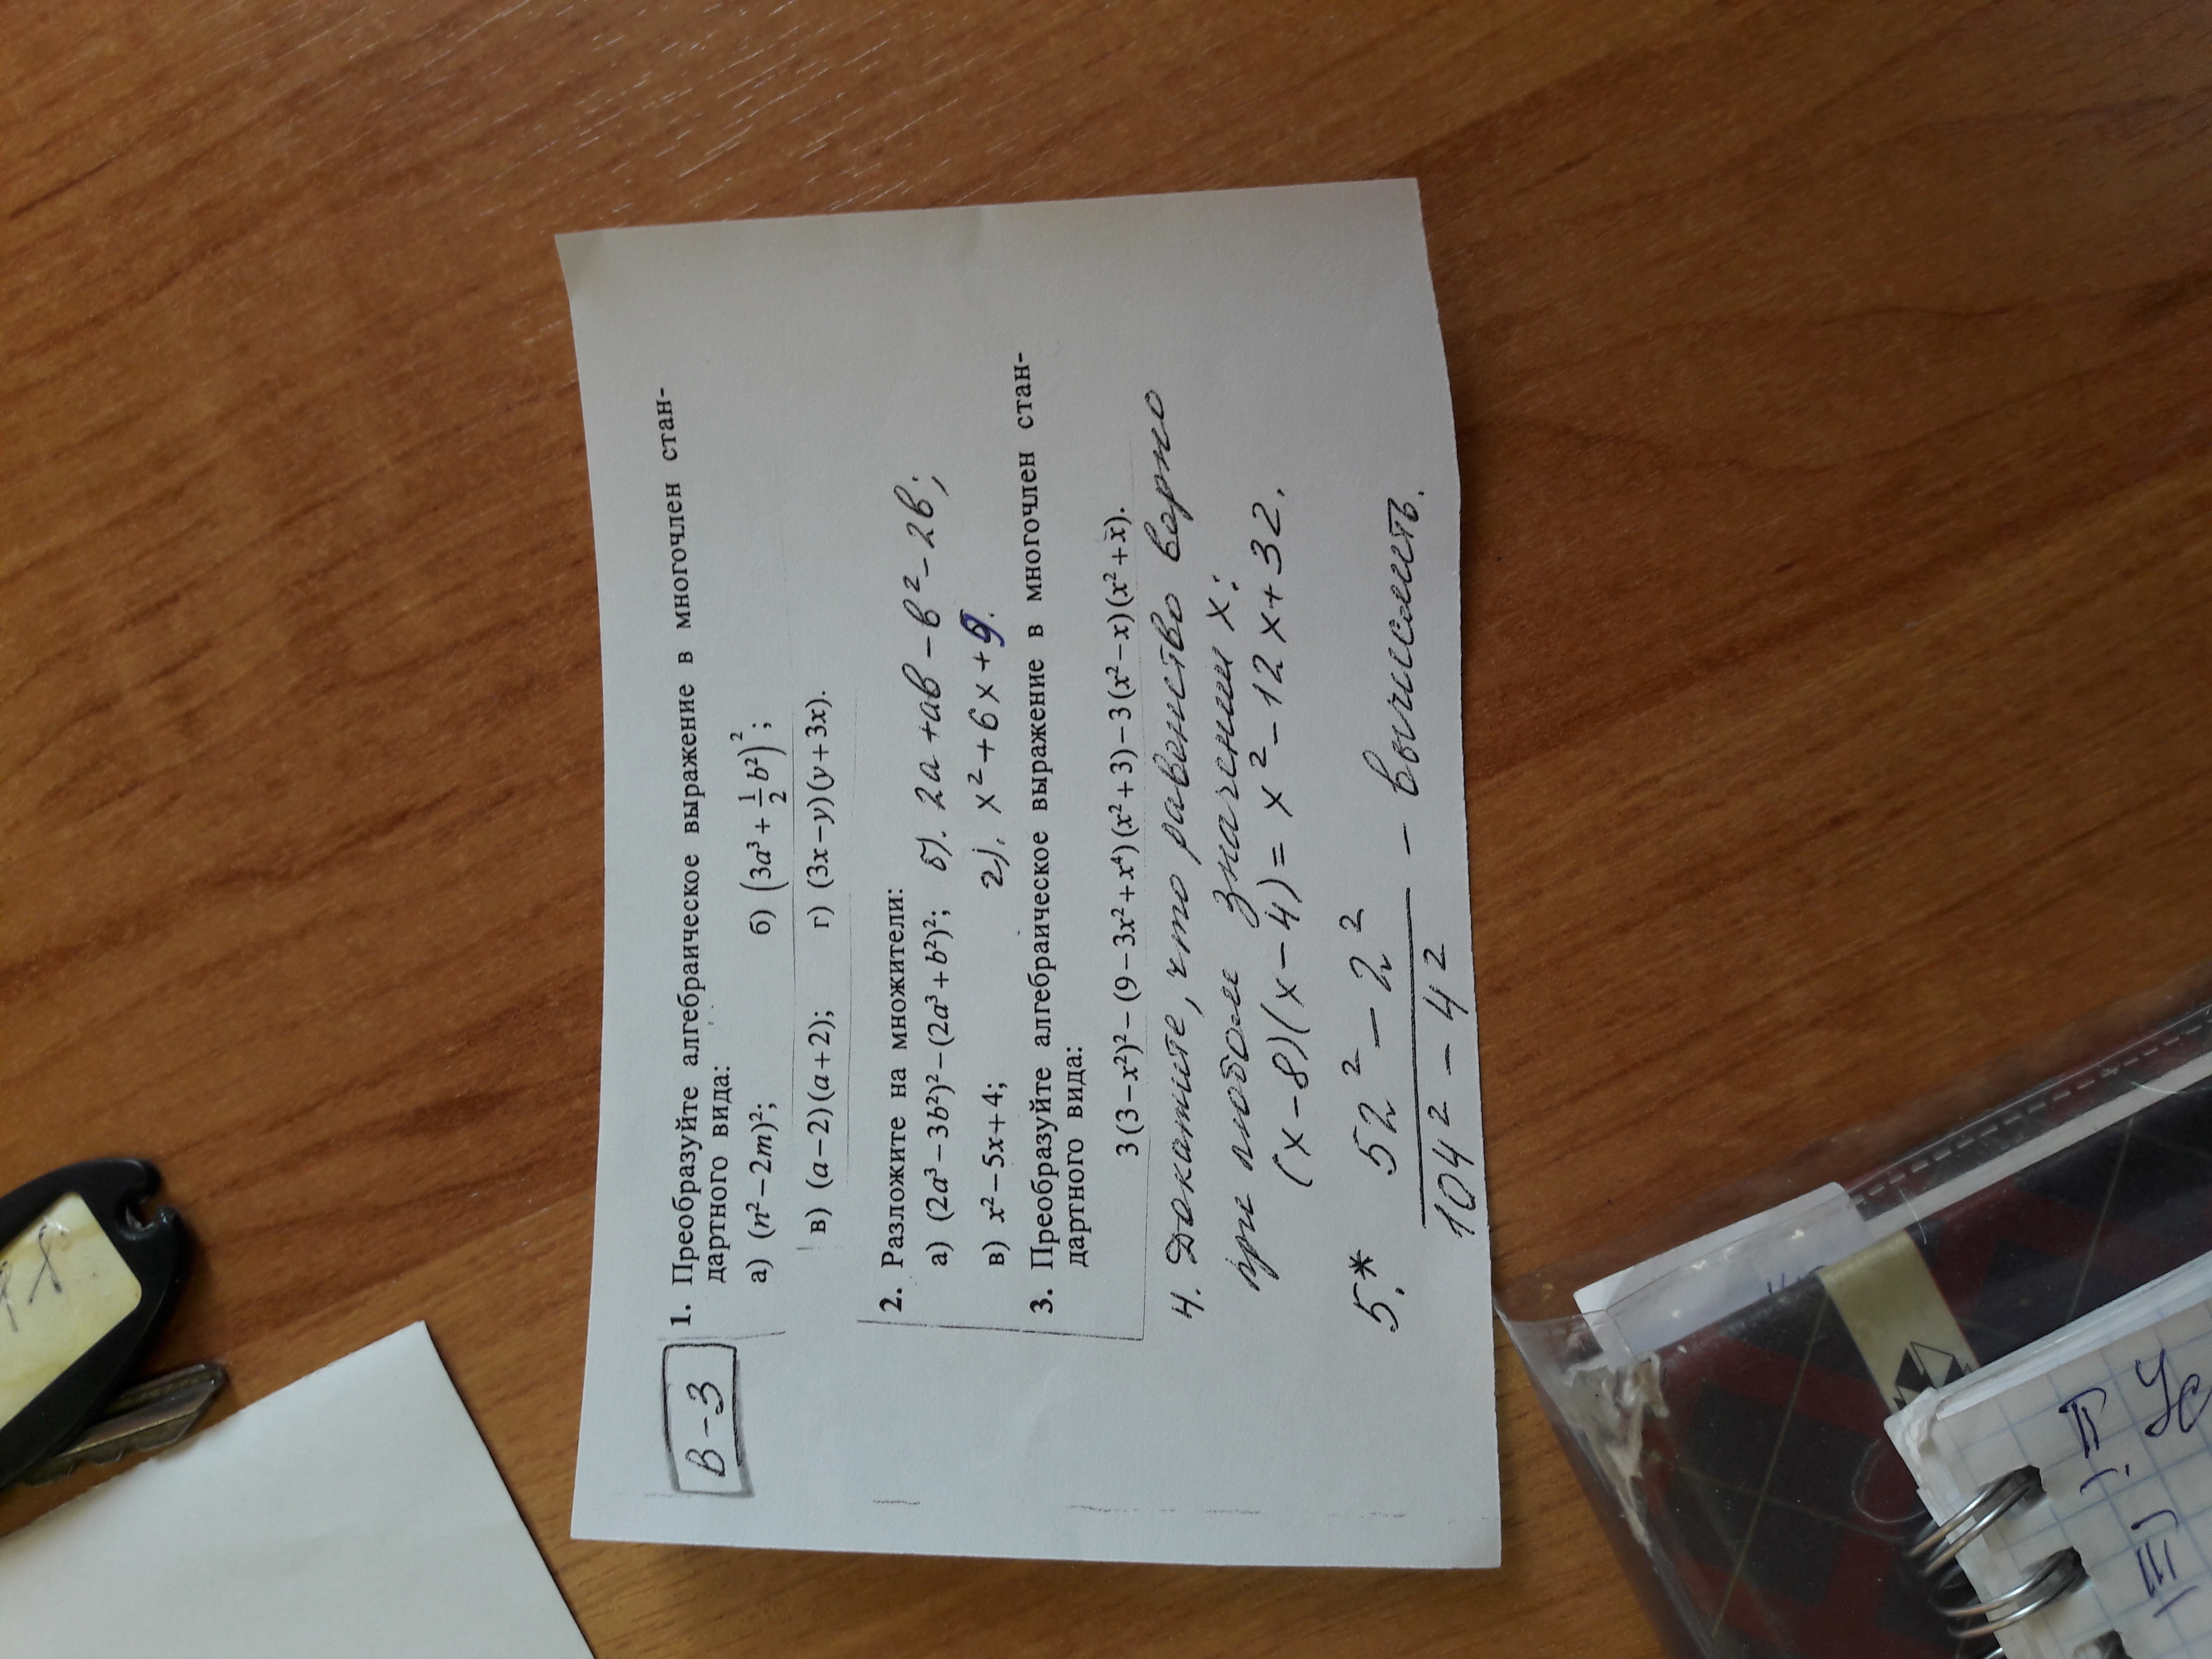 В-3
1. Преобразуйте алгебраическое выражение в многочлен стан-
дартного вида:
а) (n² − 2m)²; б) (3a³ + 1/2 b²)²;
в) (a − 2)(a + 2); г) (3x − y)(y + 3x).
2. Разложите на множители:
а) (2a³ − 3b²)² − (2a³ + b²)²; б). 2а + ав − в² − 2в;
в) x² − 5x + 4; г). x² + 6x + 9.
3. Преобразуйте алгебраическое выражение в многочлен стан-
дартного вида:
3(3 − x²)² − (9 − 3x² + x⁴)(x² + 3) − 3(x² − x)(x² + x).
4. Докажите, что равенство верно
при любом значении х:
(x − 8)(x − 4) = x² − 12x + 32.
5.* 52² − 2²
104² − 4² − вычислить.
II
III Ус